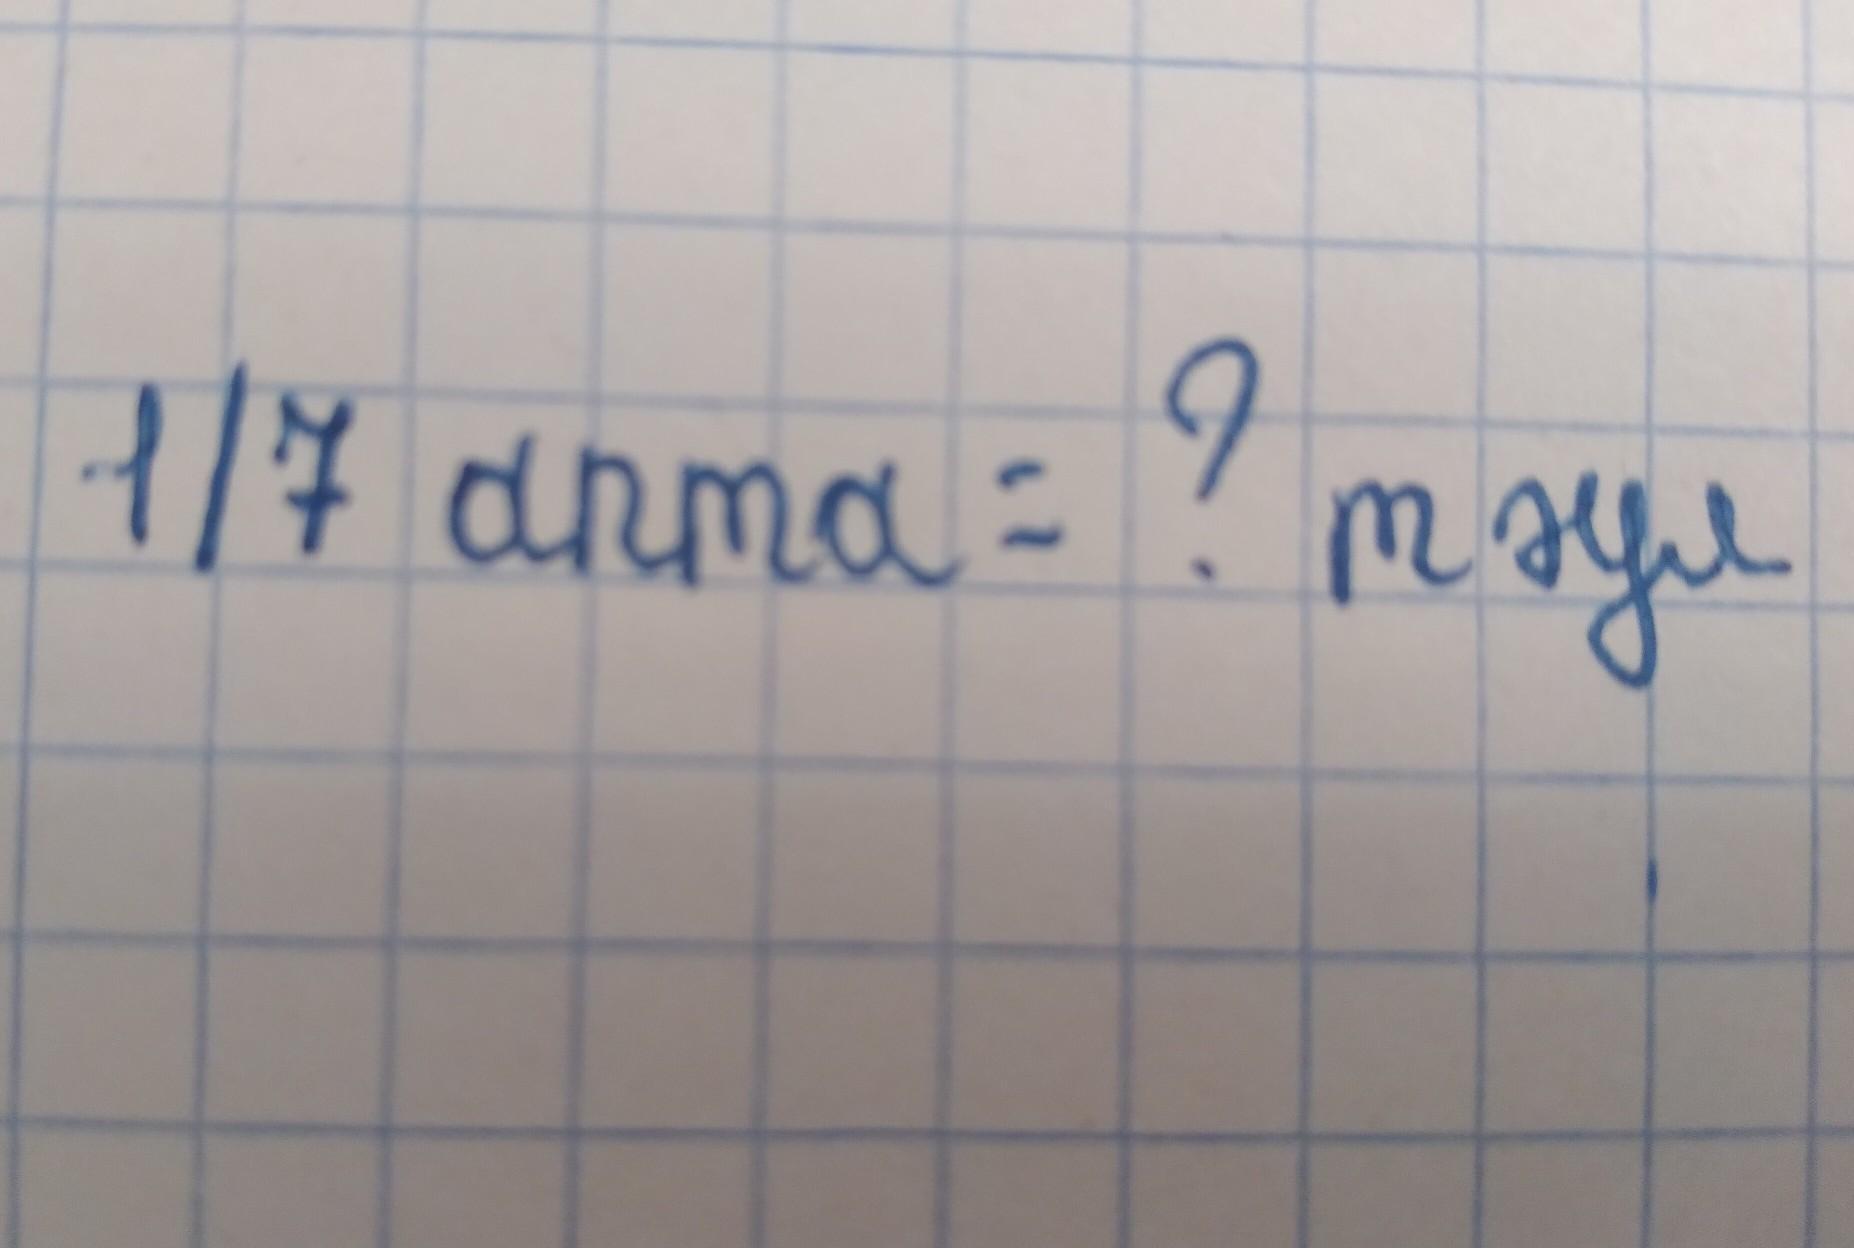 1/7 апта = ? тәул